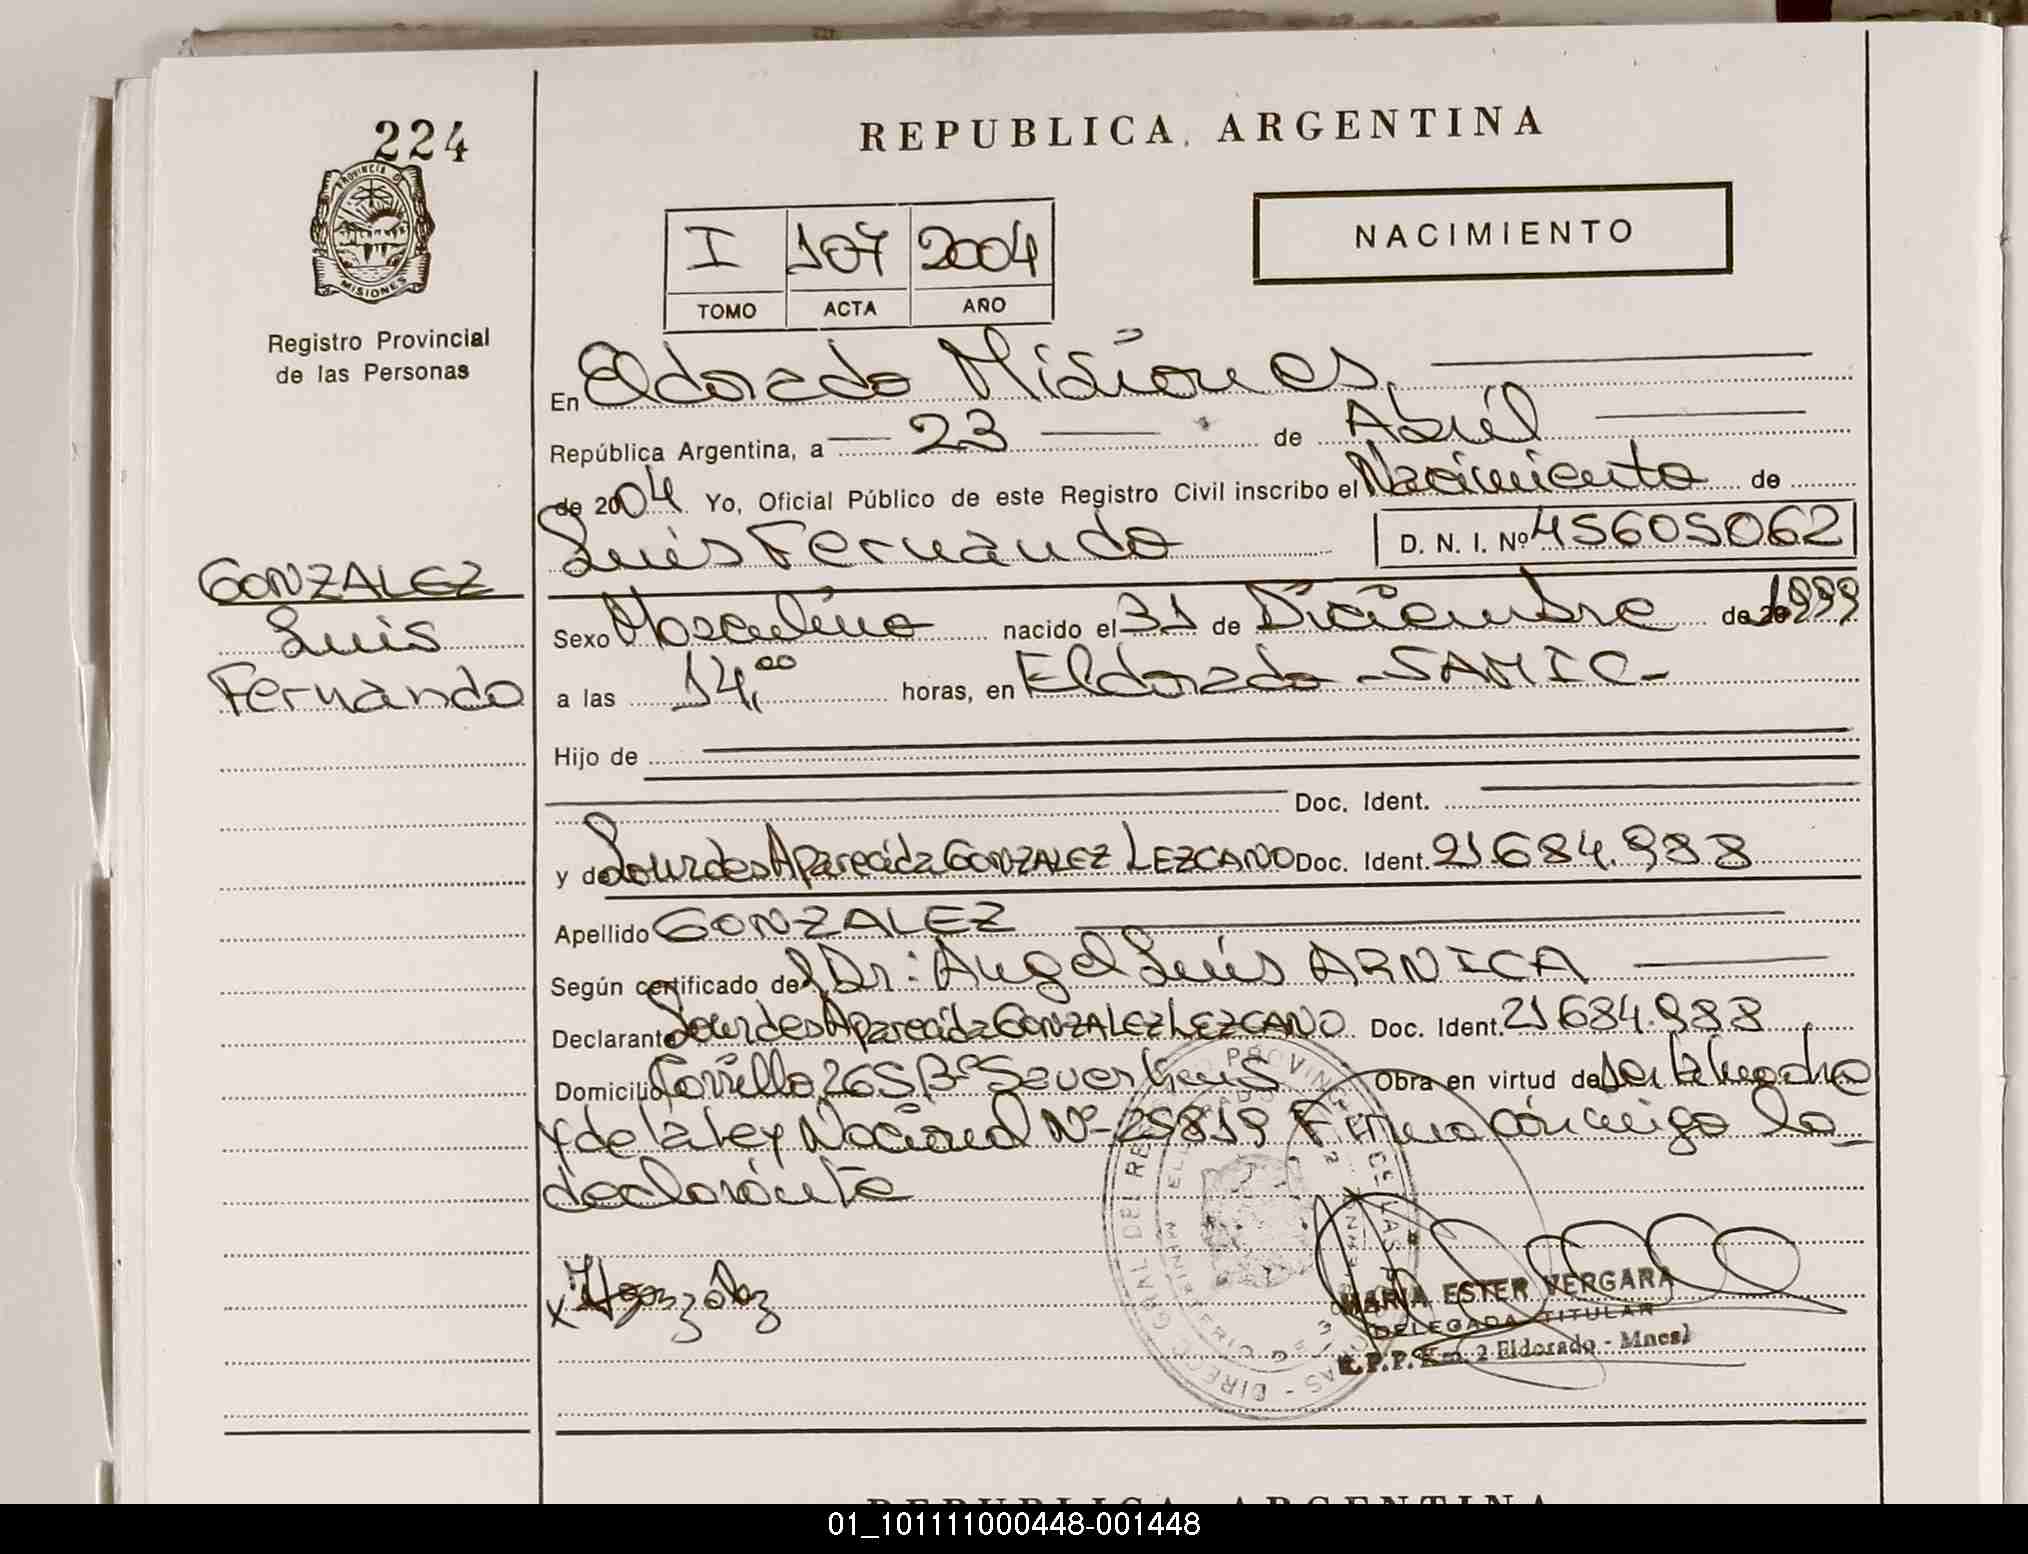 224
PROVINCIA D
MISIONES
Registro Provincial
de las Personas
GONZALEZ
Luis
Fernando
REPUBLICA ARGENTINA
I 107 2004
TOMO ACTA AÑO
NACIMIENTO
En Eldorado Misiones
República Argentina, a 23 de Abril
de 2004 Yo, Oficial Público de este Registro Civil inscribo el Nacimiento de
Luis Fernando D. N. I. Nº 45605062
Sexo Masculino nacido el 31 de Diciembre de 20 1999
a las 14,00 horas, en Eldorado - SAMIC -
Hijo de
Doc. Ident.
y de Lourdes Aparecida GONZALEZ LEZCANO Doc. Ident. 21.684.988
Apellido GONZALEZ
Según certificado del Dr: Angel Luis ARNICA
Declarante Lourdes Aparecida GONZALEZ LEZCANO Doc. Ident. 21684.988
Domicilio 265 Bº Obra en virtud de ser la madre
y de la ley Nacional Nº 25819 Firma conmigo la
declarante
x
MARIA ESTER VERGARA
DELEGADA TITULAR
R.P.P. Km. 2 Eldorado - Mnes)
REPUBLICA ARGENTINA
01_101111000448-001448